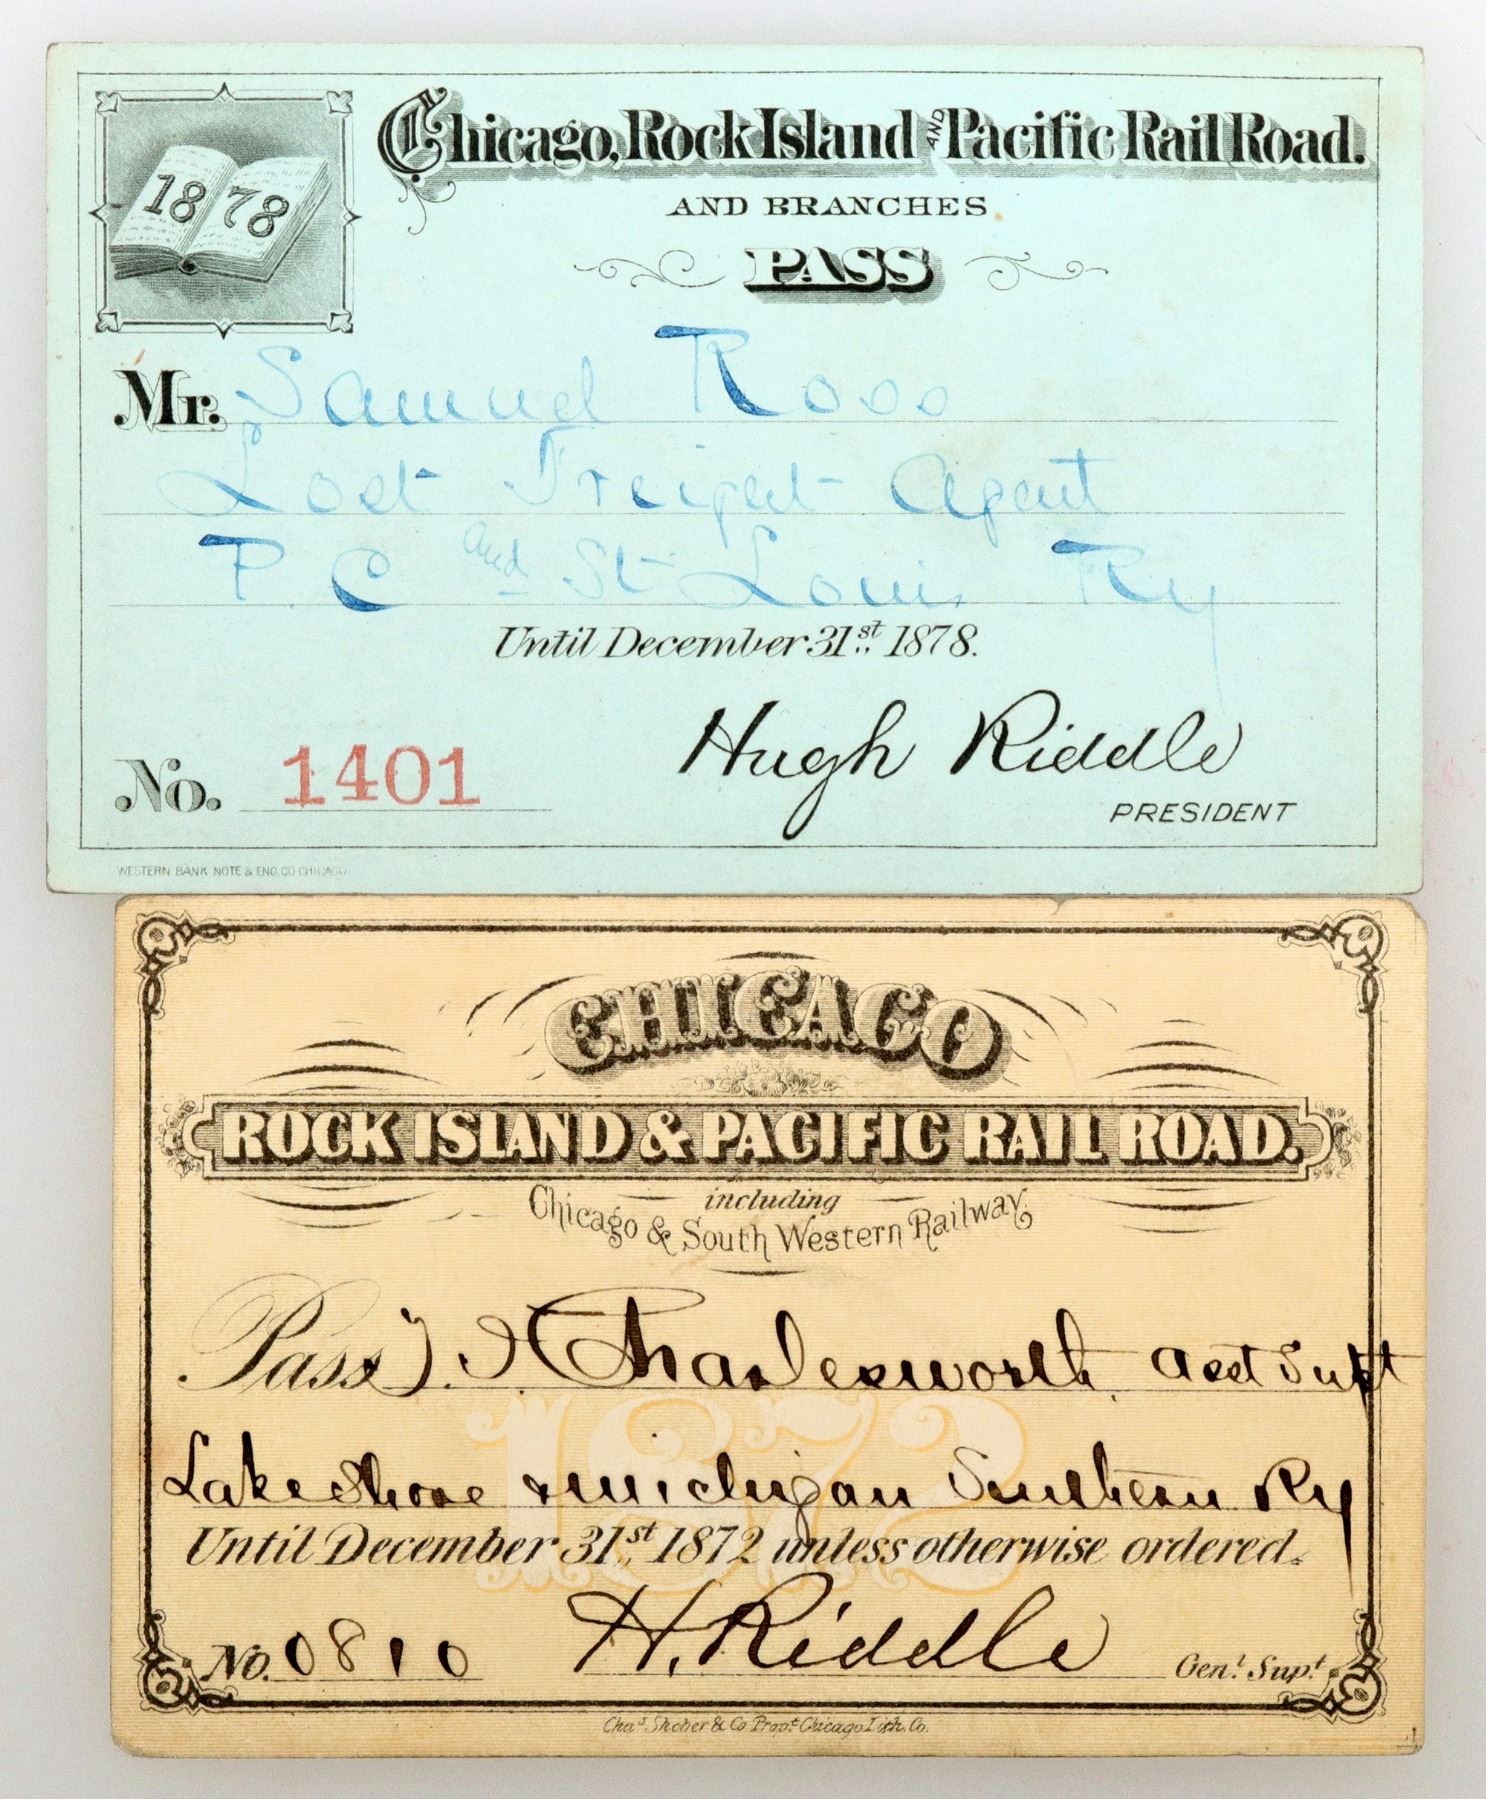 1878
Chicago, Rock Island AND Pacific Rail Road.
AND BRANCHES
PASS
Mr. Samuel Ross
Lost Freight Agent
P. C and St Louis Ry
Until December 31st 1878.
No. 1401
Hugh Riddle
PRESIDENT
WESTERN BANK NOTE & ENG. CO CHICAGO.
CHICAGO
ROCK ISLAND & PACIFIC RAIL ROAD.
including
Chicago & South Western Railway.
Pass J. H Charlesworth Asst Supt
1872
Lake Shore & Michigan Southern Ry
Until December 31st 1872 unless otherwise ordered.
No. 0810 H. Riddle Genl. Supt.
Chas. Shober & Co Propt Chicago Lith. Co.